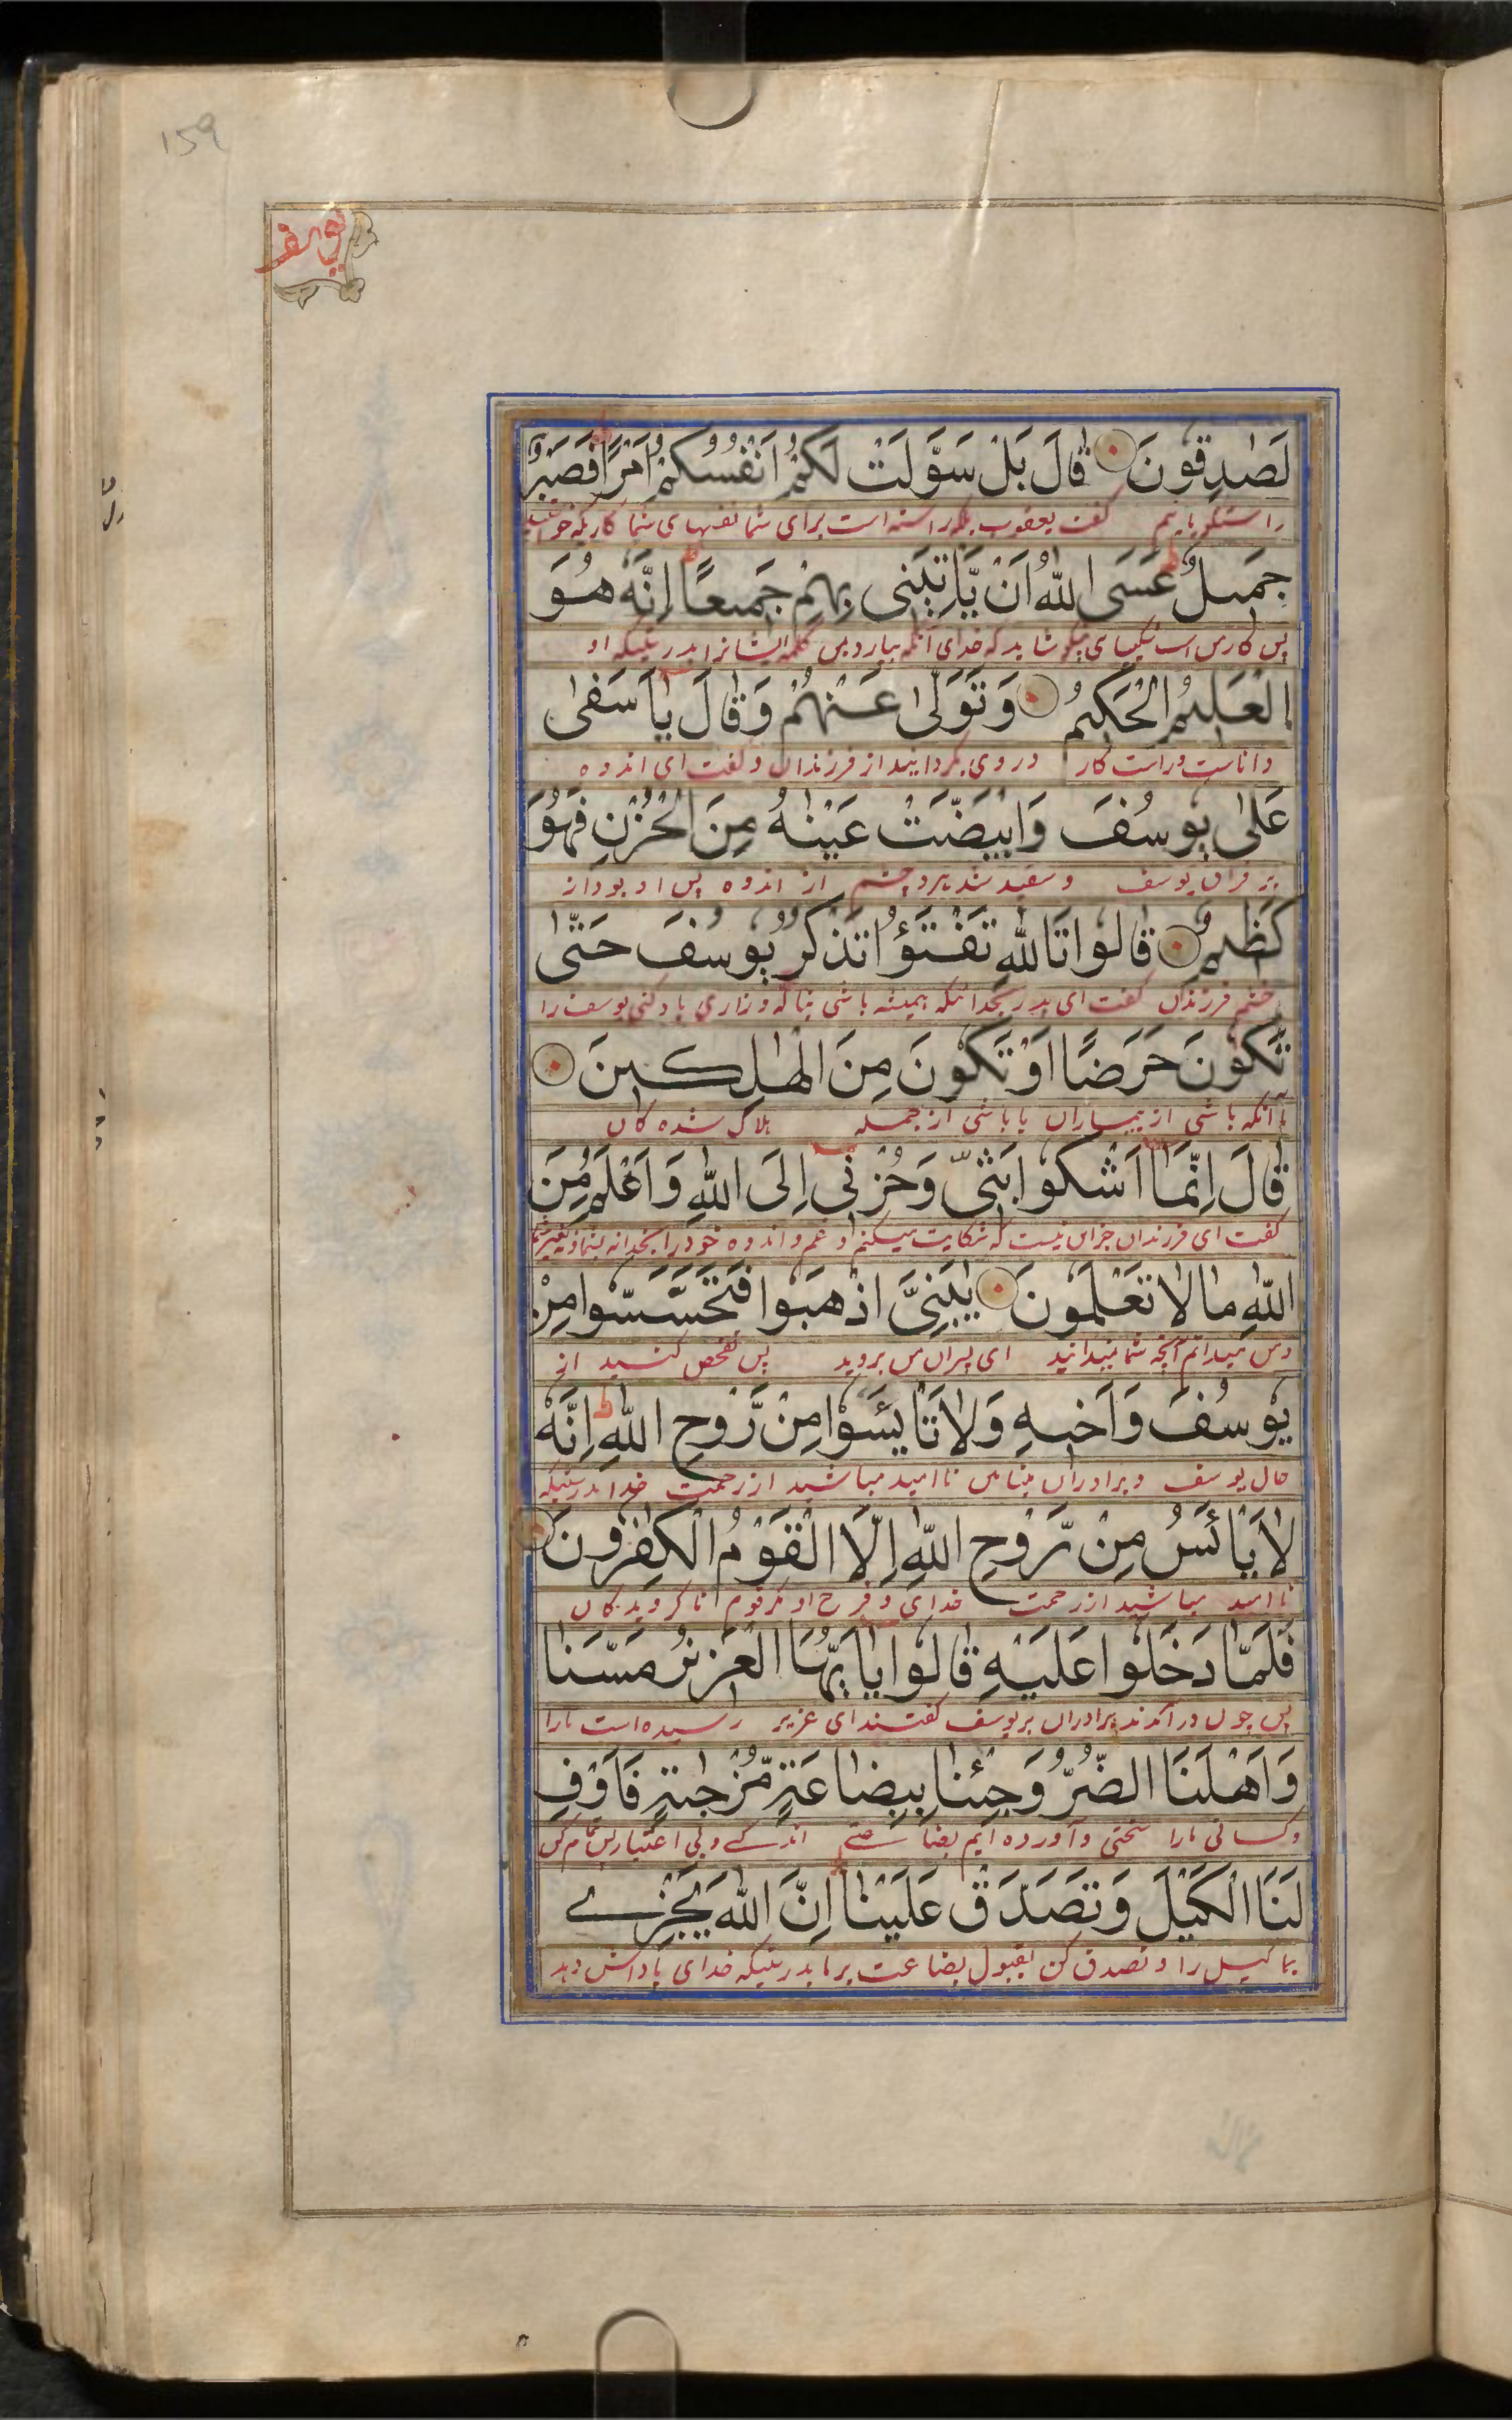 159
يوسف
لَصٰدِقُونَ قَالَ بَلْ سَوَّلَتْ لَكُمْ اَنْفُسُكُمْ اَمْرًا فَصَبْرٌ
راستگویانیم گفت یعقوب بلکه اراسته است برای شما نفسهای شما کاریکه
جَمِيلٌ عَسَى اللّٰهُ اَنْ يَّاْتِيَنِى بِهِمْ جَمِيعًا اِنَّهٗ هُوَ
پس کار من است شکیبای نیکو شاید که خدای آنکه بیارد بمن همه ایشانرا بدرستیکه او
الْعَلِيمُ الْحَكِيمُ وَتَوَلّٰى عَنْهُمْ وَقَالَ يٰاَسَفٰى
دانااست و راست کار و روی بگردانید از فرزندان و گفت ای اندوه
عَلٰى يُوسُفَ وَابْيَضَّتْ عَيْنٰهُ مِنَ الْحُزْنِ فَهُوَ
بر فراق یوسف و سفید شد هر دو چشم از اندوه پس او بود از
كَظِيمٌ قَالُوا تَاللّٰهِ تَفْتَؤُا تَذْكُرُ يُوسُفَ حَتّٰى
خشم فرزندان گفت ای پدر بخدا که همیشه باشی بناله و زاری یاد کنی یوسف را
تَكُونَ حَرَضًا اَوْ تَكُونَ مِنَ الْهٰلِكِينَ
تا آنکه باشی از بیماران یا باشی از جمله هلاک شده کان
قَالَ اِنَّمَا اَشْكُوا بَثِّى وَحُزْنِى اِلَى اللّٰهِ وَاَعْلَمُ مِنَ
گفت ای فرزندان جزاین نیست که شکایت میکنم و غم و اندوه خود را بخدا نه بشما و بغیر شما
اللّٰهِ مَا لَا تَعْلَمُونَ يٰبَنِىَّ اذْهَبُوا فَتَحَسَّسُوا مِنْ
و من میدانم آنچه شما نمیدانید ای پسران من بروید پس تفحص کنید از
يُوسُفَ وَاَخِيهِ وَلَا تَايْئَسُوا مِنْ رَّوْحِ اللّٰهِ اِنَّهٗ
حال یوسف و برادران بنیامین ناامید مباشید از رحمت خدا بدرستیکه
لَا يَايْئَسُ مِنْ رَّوْحِ اللّٰهِ اِلَّا الْقَوْمُ الْكٰفِرُونَ
ناامید مباشید از رحمت خدای و فرح او مگر قوم ناگرویده کان
فَلَمَّا دَخَلُوا عَلَيْهِ قَالُوا يٰاَيُّهَا الْعَزِيزُ مَسَّنَا
پس چون درآمدند برادران بر یوسف گفتند ای عزیز رسیده است مارا
وَاَهْلَنَا الضُّرُّ وَجِئْنَا بِبِضَاعَةٍ مُّزْجٰىةٍ فَاَوْفِ
و کسانی مارا سختی و آورده ایم بضاعتے اندکے و بی اعتبار پس تمام کن
لَنَا الْكَيْلَ وَتَصَدَّقْ عَلَيْنَا اِنَّ اللّٰهَ يَجْزِے
بما کیل را و تصدق کن بقبول بضاعت بر ما بدرستیکه خدای پاداش دهد